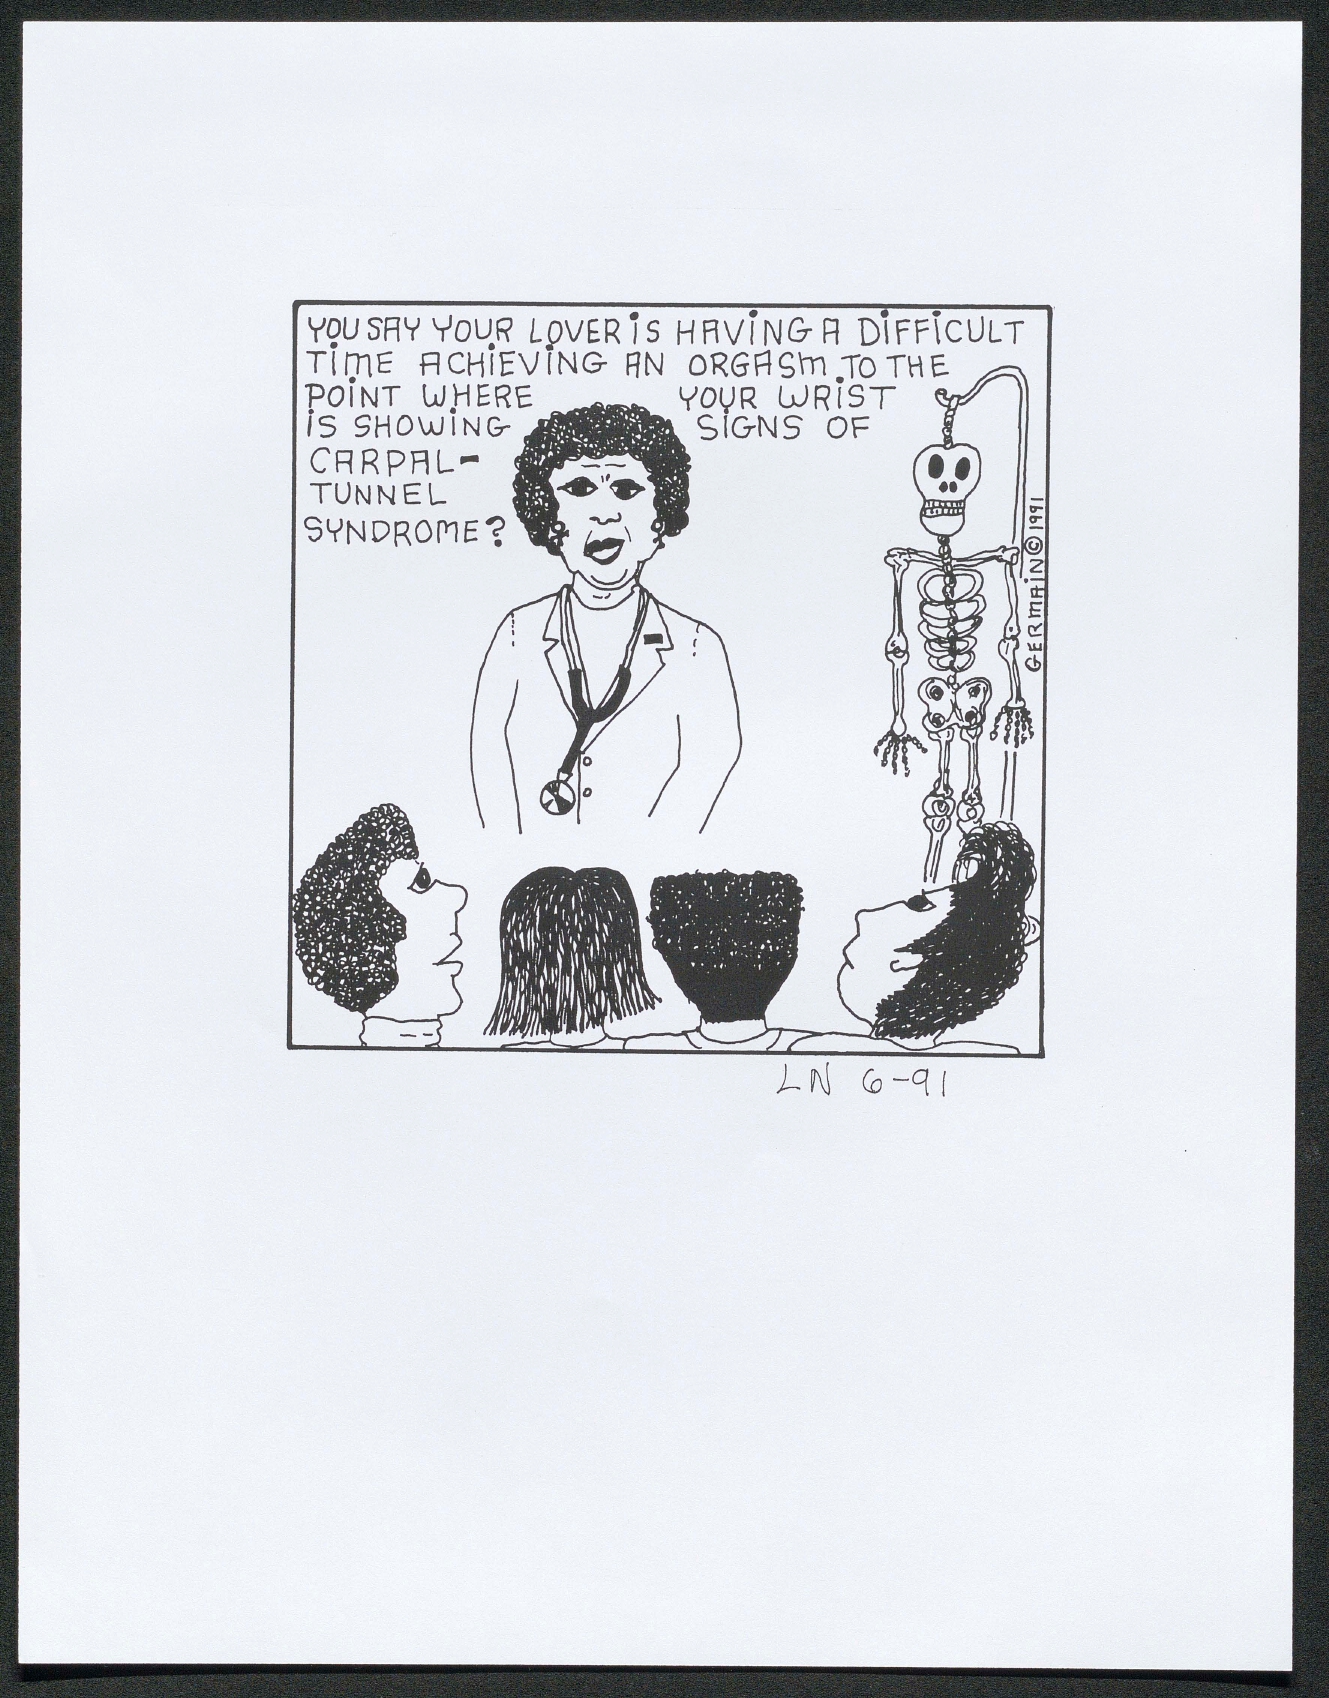 YOU SAY YOUR LOVER iS HAViNG A DiFFiCULT
TiME ACHiEViNG AN ORGASM TO THE
POiNT WHERE YOUR WRiST
iS SHOWiNG SiGNS OF
CARPAL-
TUNNEL
SYNDROME?
GERMAiN © 1991
LN 6-91